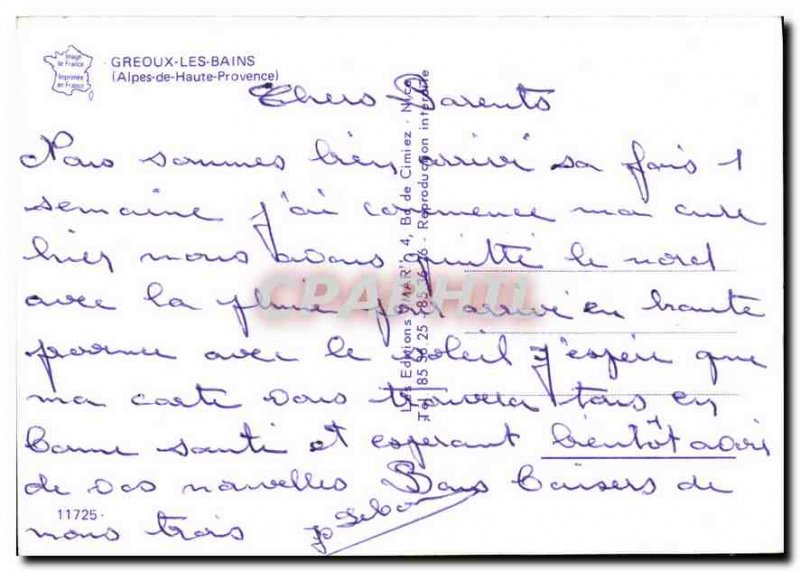 Image
de France
Imprimée
en France
GREOUX-LES-BAINS
(Alpes-de-Haute-Provence)
Chers Parents
Nous sommes bien arrivé sa fais 1
semaine j'ai commence ma cure
hier nous avons quitté le nord
avec la pluie pour arrivé en haute
provence avec le soleil j'espère que
ma carte vous trouvera tous en
bonne santé et esperant bientôt avoir
de vos nouvelles Bons baisers de
nous trois
11725-
Les Editions "MAR", 4, Bd de Cimiez - Nice
Reproduction interdite
CPARHTI